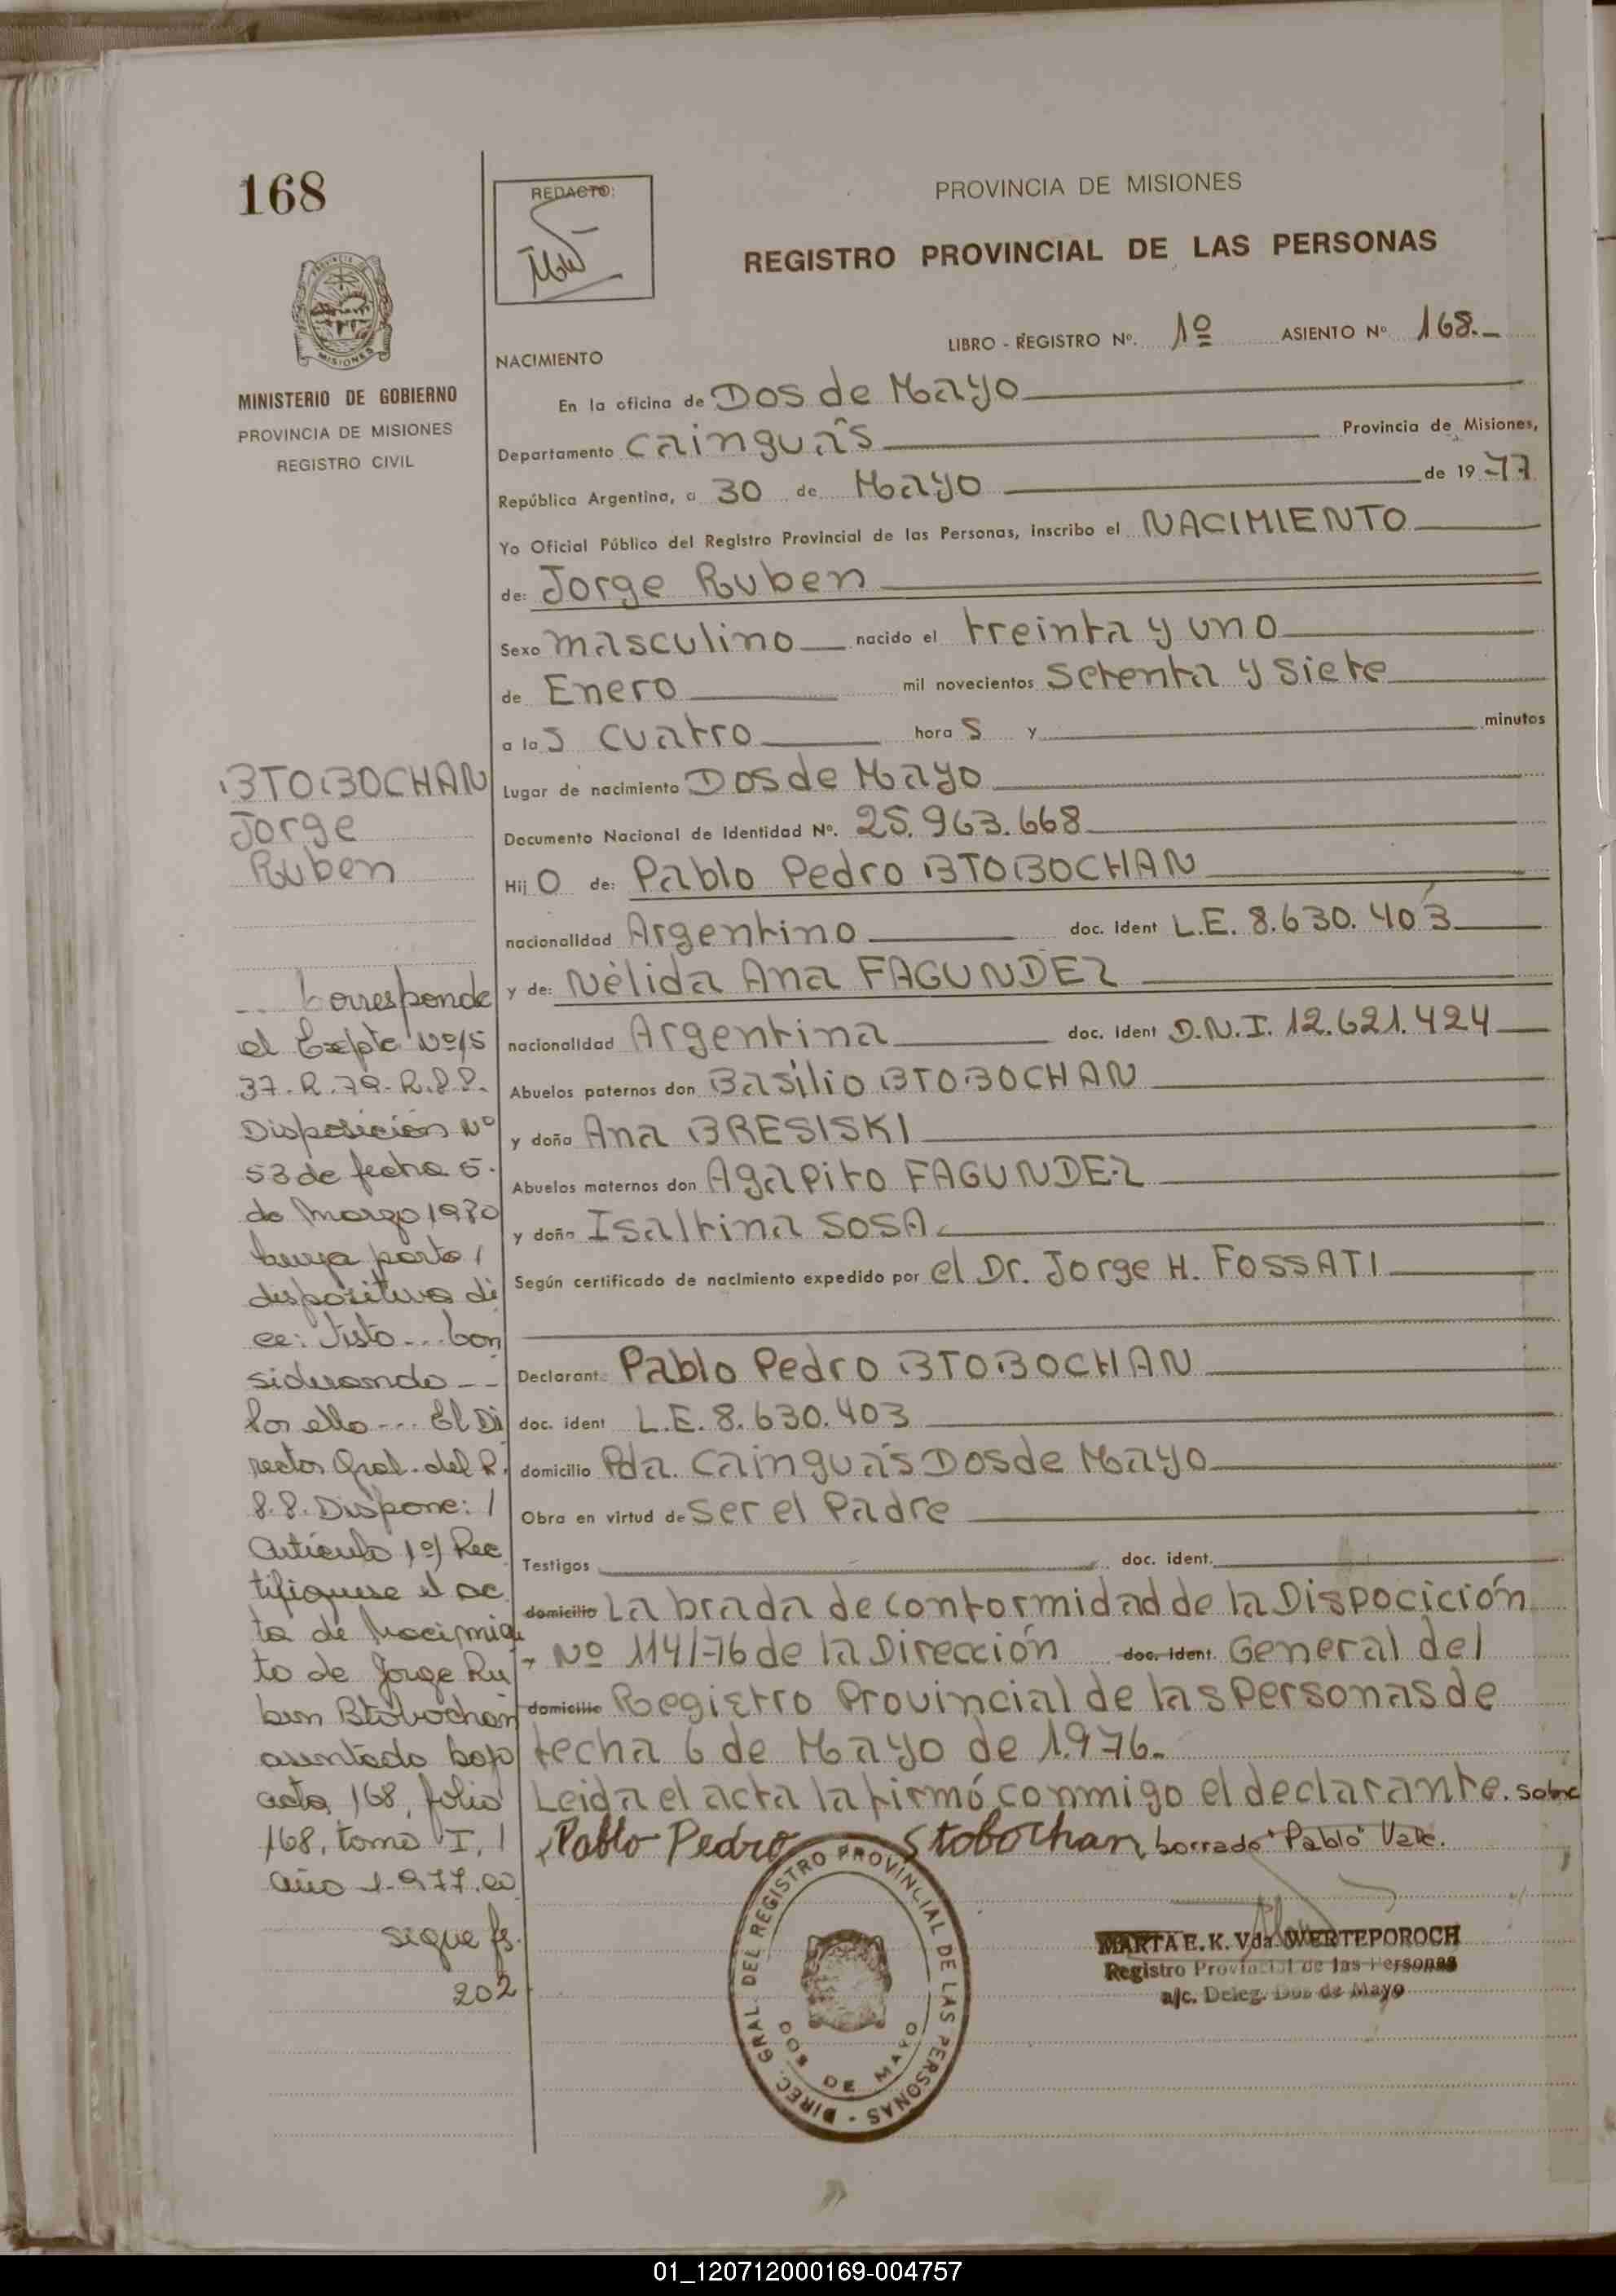 168
PROVINCIA DE MISIONES
MINISTERIO DE GOBIERNO
PROVINCIA DE MISIONES
REGISTRO CIVIL
BTOBOCHAN
Jorge
Ruben
Corresponde
al Expte Nº 15
37-R-79-R.P.P.
Disposición Nº
53 de fecha 5
de Marzo 1980
cuya parte
dispositiva di
ce: Visto... Con
siderando - -
Por ello... El Di
rector Gral. del R.
P.P. Dispone:
Artículo 1º) Rec
tifiquese el ac
ta de Nacimien
to de Jorge Ru
ben Btobochan
asentado bajo
acta 168, folio
168, tomo I,
año 1.977.
sigue fs.
202
REDACTO:
PROVINCIA DE MISIONES
REGISTRO PROVINCIAL DE LAS PERSONAS
LIBRO - REGISTRO Nº. 1º ASIENTO Nº 168.-
NACIMIENTO
En la oficina de Dos de Mayo
Departamento Cainguás Provincia de Misiones,
República Argentina, a 30 de Mayo de 1977
Yo Oficial Público del Registro Provincial de las Personas, inscribo el NACIMIENTO
de: Jorge Ruben
Sexo masculino nacido el treinta y uno
de Enero mil novecientos setenta y siete
a las cuatro horas y minutos
Lugar de nacimiento Dos de Mayo
Documento Nacional de Identidad Nº. 25.963.668
Hijo de: Pablo Pedro BTOBOCHAN
nacionalidad Argentino doc. Ident L.E. 8.630.403
y de: Nélida Ana FAGUNDEZ
nacionalidad Argentina doc. Ident D.N.I. 12.621.424
Abuelos paternos don Basilio BTOBOCHAN
y doña Ana BRESISKI
Abuelos maternos don Agapito FAGUNDEZ
y doña Isaltina SOSA
Según certificado de nacimiento expedido por el Dr. Jorge H. FOSSATI
Declarante Pablo Pedro BTOBOCHAN
doc. ident L.E. 8.630.403
domicilio Pda. Cainguás Dos de Mayo
Obra en virtud de ser el Padre
Testigos doc. ident.
domicilio Labrada de conformidad de la Disposición
Nº 114/76 de la Dirección doc. Ident. General del
domicilio Registro Provincial de las Personas de
fecha 6 de Mayo de 1.976.
Leida el acta la firmó conmigo el declarante. sobre
Pablo Pedro Stobochan, borrado "Pablo" Vale.
DIREC. GRAL. DEL REGISTRO PROVINCIAL DE LAS PERSONAS -
DOS DE MAYO
MARTA E. K. Vda. WERTEPOROCH
Registro Provincial de las Personas
a/c. Deleg. Dos de Mayo
01_120712000169-004757